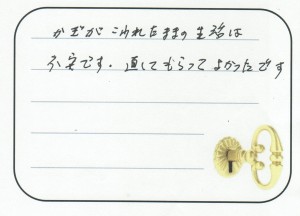 かぎがこわれたままの生活は
不安です。直してもらってよかったです